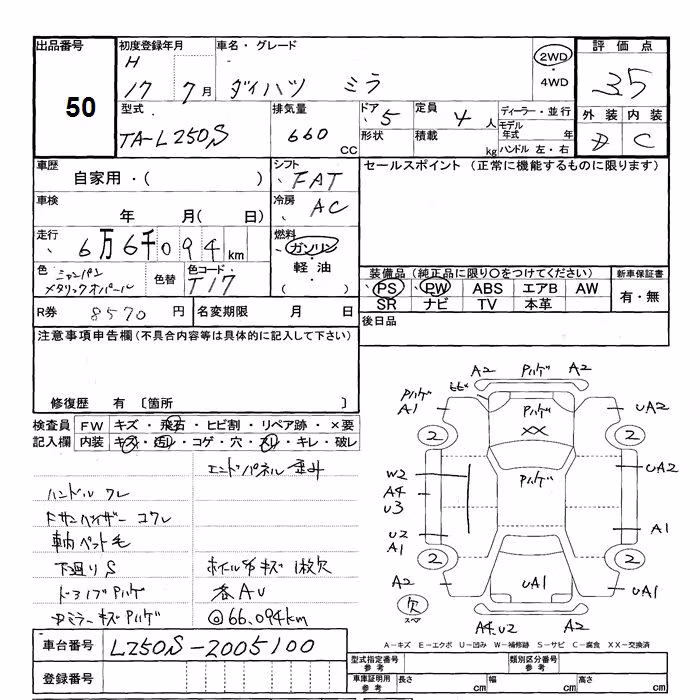 出品番号
50
初度登録年月
H
17 7月
車名・グレード
ダイハツ ミラ
2WD
・
4WD
評価点
3.5
外装 内装
D C
型式
TA-L250S
排気量
660
CC
ドア
5
形状
定員
4 人
積載
kg
ディーラー・並行
モデル
年式 年
ハンドル 左・右
車歴
自家用・( )
シフト
FAT
車検
年 月( 日)
冷房
AC
走行
6万6千094 km
燃料
ガソリン
・
軽油
( )
色
シャンパン
メタリックオパール
色替
色コード
T17
R券
8570 円
名変期限 月 日
セールスポイント (正常に機能するものに限ります)
装備品(純正品に限り○をつけてください)
PS PW ABS エアB AW
SR ナビ TV 本革
新車保証書
有・無
後日品
注意事項申告欄(不具合内容等は具体的に記入して下さい)
修復歴 有 〔箇所 〕
検査員
記入欄
FW キズ・飛石・ヒビ割・リペア跡・×要
内装 キズ・汚レ・コゲ・穴・スレ・キレ・破レ
エンドパネル歪み
ハンドル スレ
Fサンバイザー コワレ
車内ペット毛
下廻りS
ホイールキズ 1枚欠
ドライブハゲ
各AU
Dミラーキズハゲ
@66,094km
A2 ハゲ A2
ハゲ
A1
ヒビ
ハゲ
XX
UA2
2 2
ハゲ
W2
A4
U3
UA2
U2
A1
A1
2 2
A2
UA1
UA1
欠
スペア
A4.U2 A2
A-キズ E-エクボ U-凹み W-補修跡 S-サビ C-腐食 XX-交換済
車台番号
L250S-2005100
登録番号
型式指定番号
参考
類別区分番号
参考
車庫証明用
参考
長さ cm
幅 cm
高さ cm